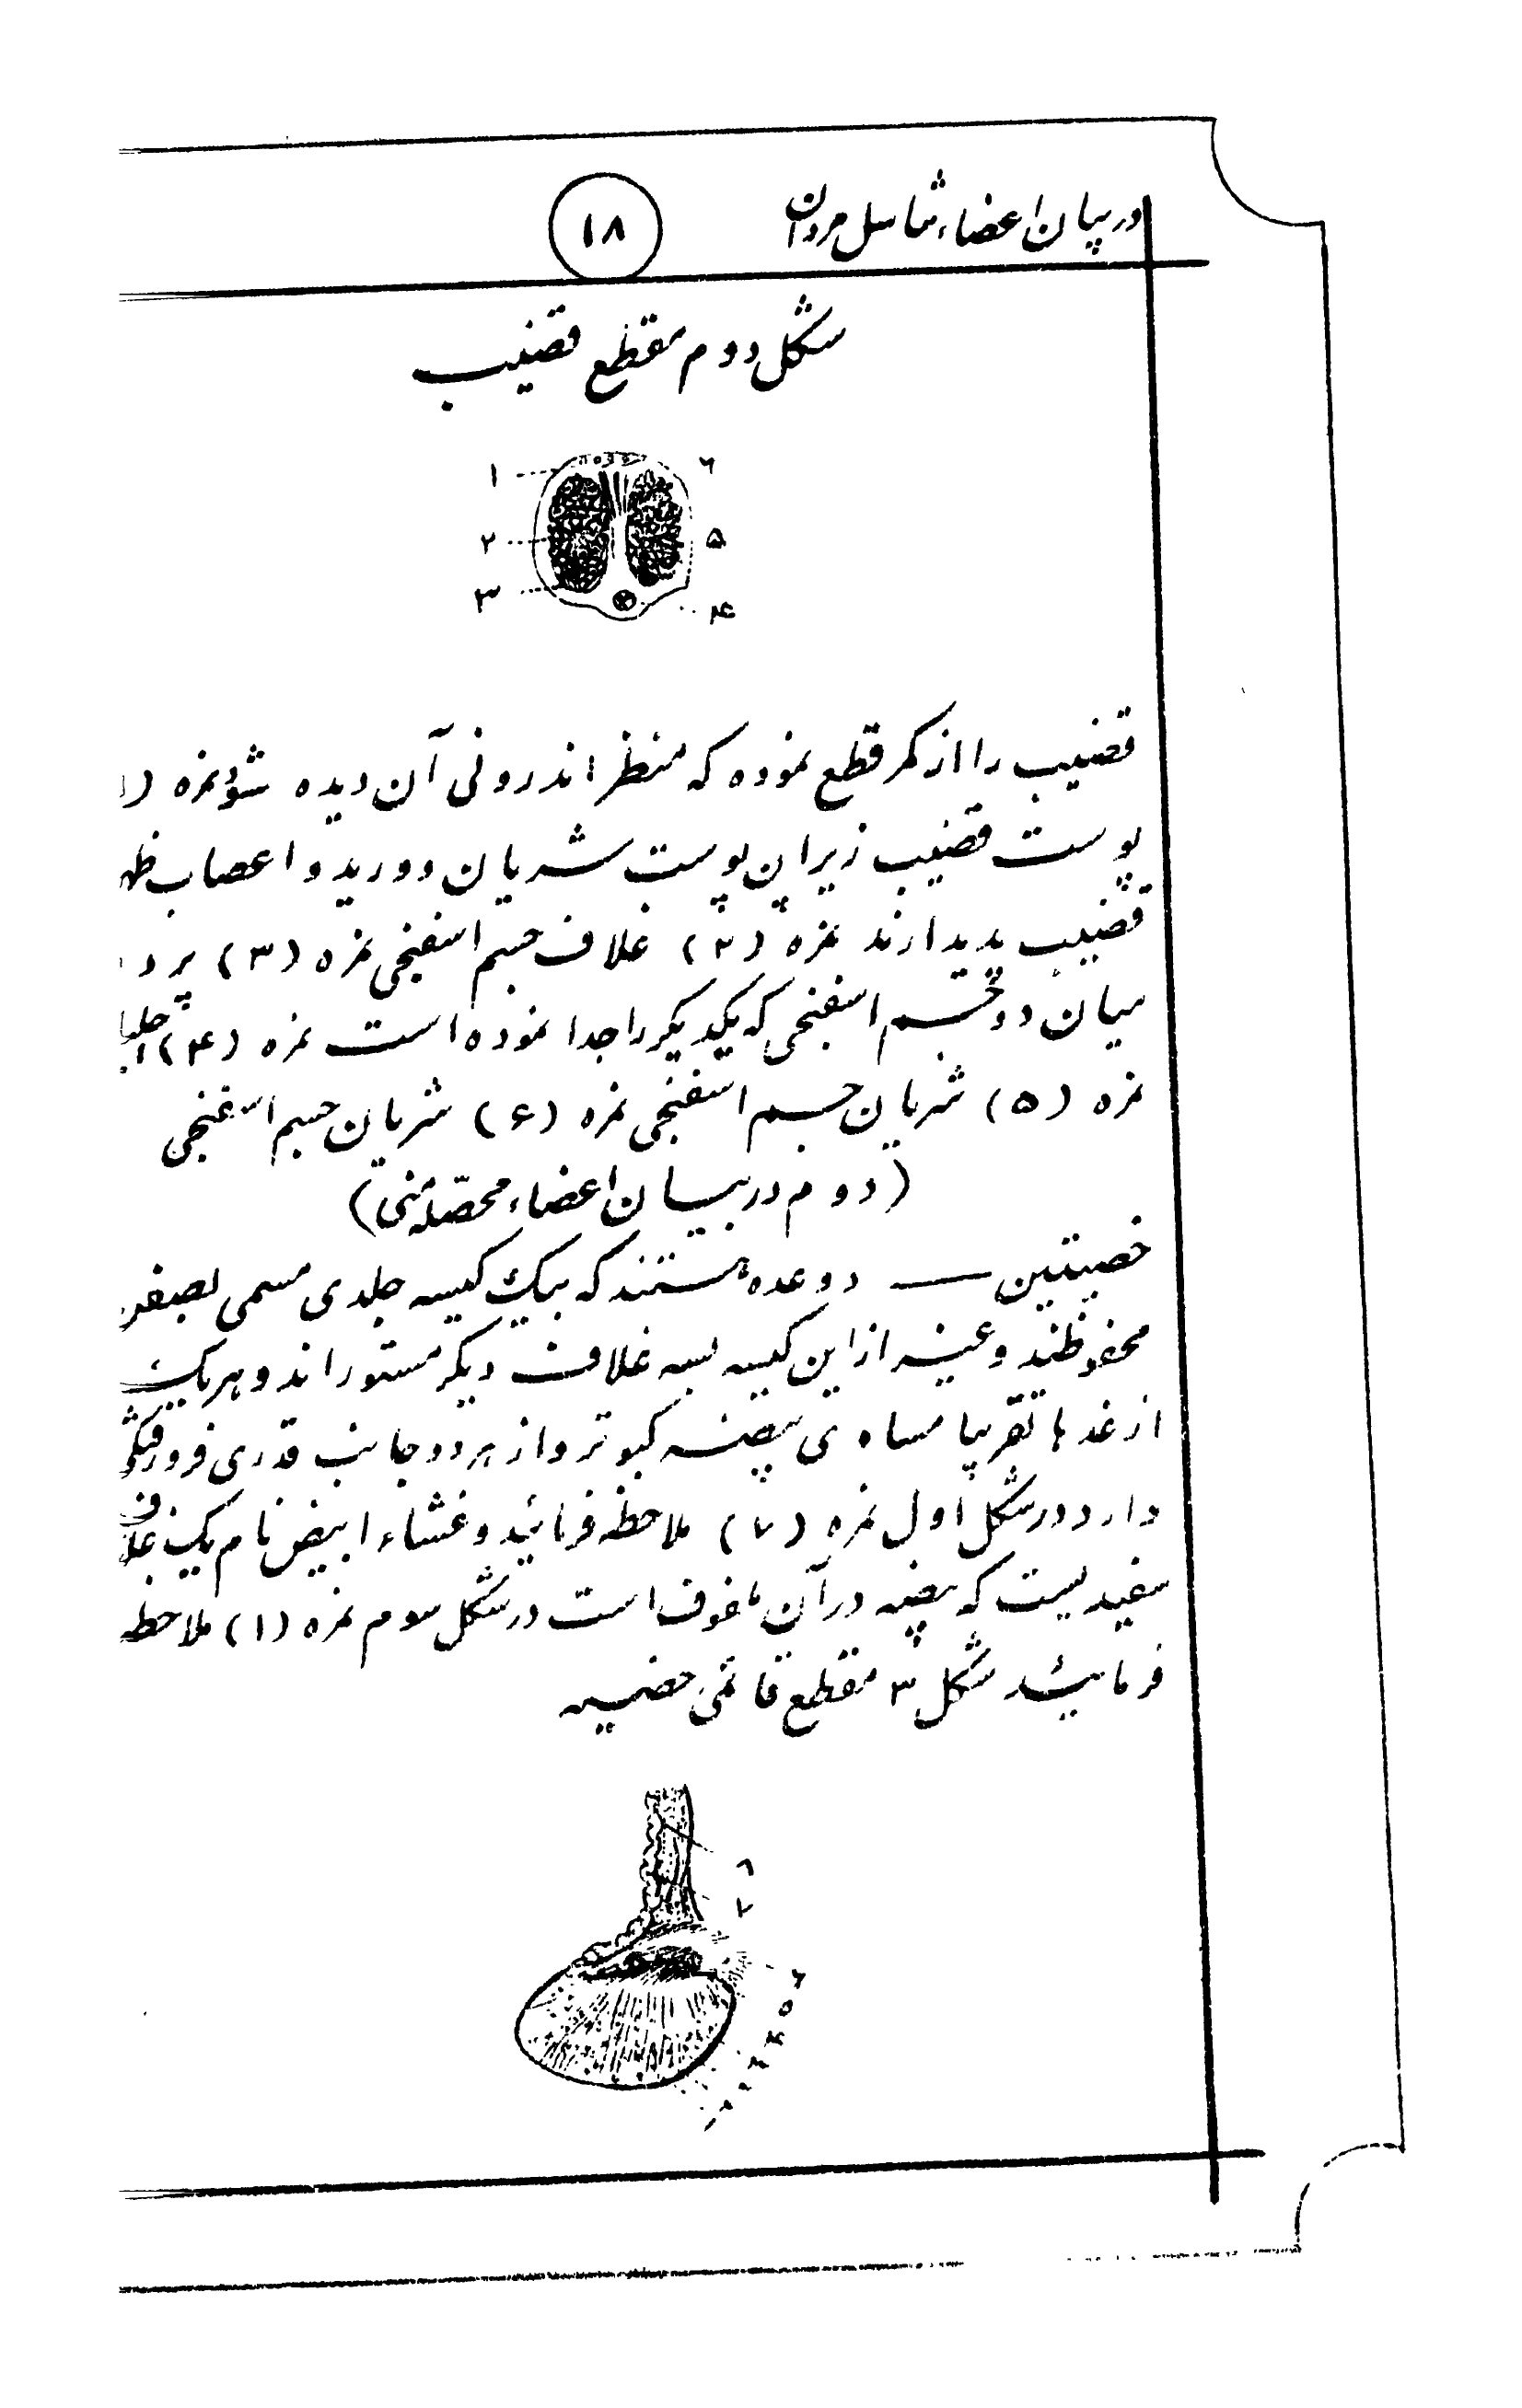 در بیان اعضاء تناسل مردان
۱۸
شکل دوم مقطع قضیب
۱ ۶
۲ ۵
۳ ۴
قضیب را از کمر قطع نموده که منظر اندرونی آن دیده شود نمره (۱
پوست قضیب زیر این پوست شریان و ورید و اعصاب ظهر
قضیب پدیدارند نمره (۲) غلاف جسم اسفنجی نمره (۳) پرد
میان دو جسم اسفنجی که یکدیگر را جدا نموده است نمره (۴)
نمره (۵) شریان جسم اسفنجی نمره (۶) شریان جسم اسفنجی
(دوم در بیان اعضاء محصّله منی)
خصیتین — دو غده هستند که بیک کیسه جلدی مسمی بصفن
محفوظند و غیر از این کیسه بسه غلاف دیگر مستوراند و هریک
از غدها تقریبا مساوی بیضه کبوتر و از هر دو جانب قدری فرورفتگی
دارد در شکل اول نمره (۷) ملاحظه فرمائید و غشاء ابیض نام یک غلاف
سفیدیست که بیضه در آن ملفوف است در شکل سوم نمره (۱) ملاحظه
فرمائید شکل ۳ مقطع قائمی خصیه
۸
۷
۶
۵
۴
۳
۲
۱